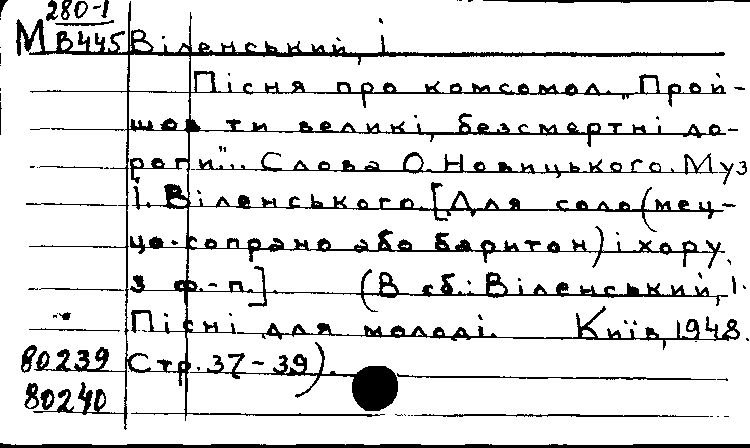 280-1
М В445 Віленський, І.
Пісня про комсомол. „Прой-
шов ти великі, безсмертні до-
роги"... Слова О. Новицького. Муз
І. Віленського. [Для соло (мец-
цо-сопрано або баритон) і хору
з ф.-п.]. (В сб.: Віленський, І.
Пісні для молоді. Київ, 1948.
80239 Стр. 37-39).
80240